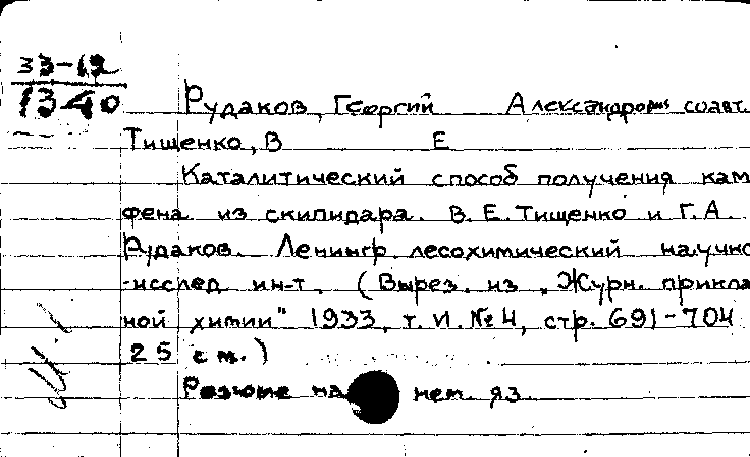 33-12
1340
Рудаков, Георгий Александрович соавт.
Тищенко, В Е
Каталитический способ получения кам
фена из скипидара. В. Е. Тищенко и Г. А
Рудаков. Ленингр. лесохимический научно
-исслед. ин-т. (Вырез. из „Журн. прикла
ной химии" 1933, т. И. № 4, стр. 691-704
25 см.)
Резюме на нем. яз.